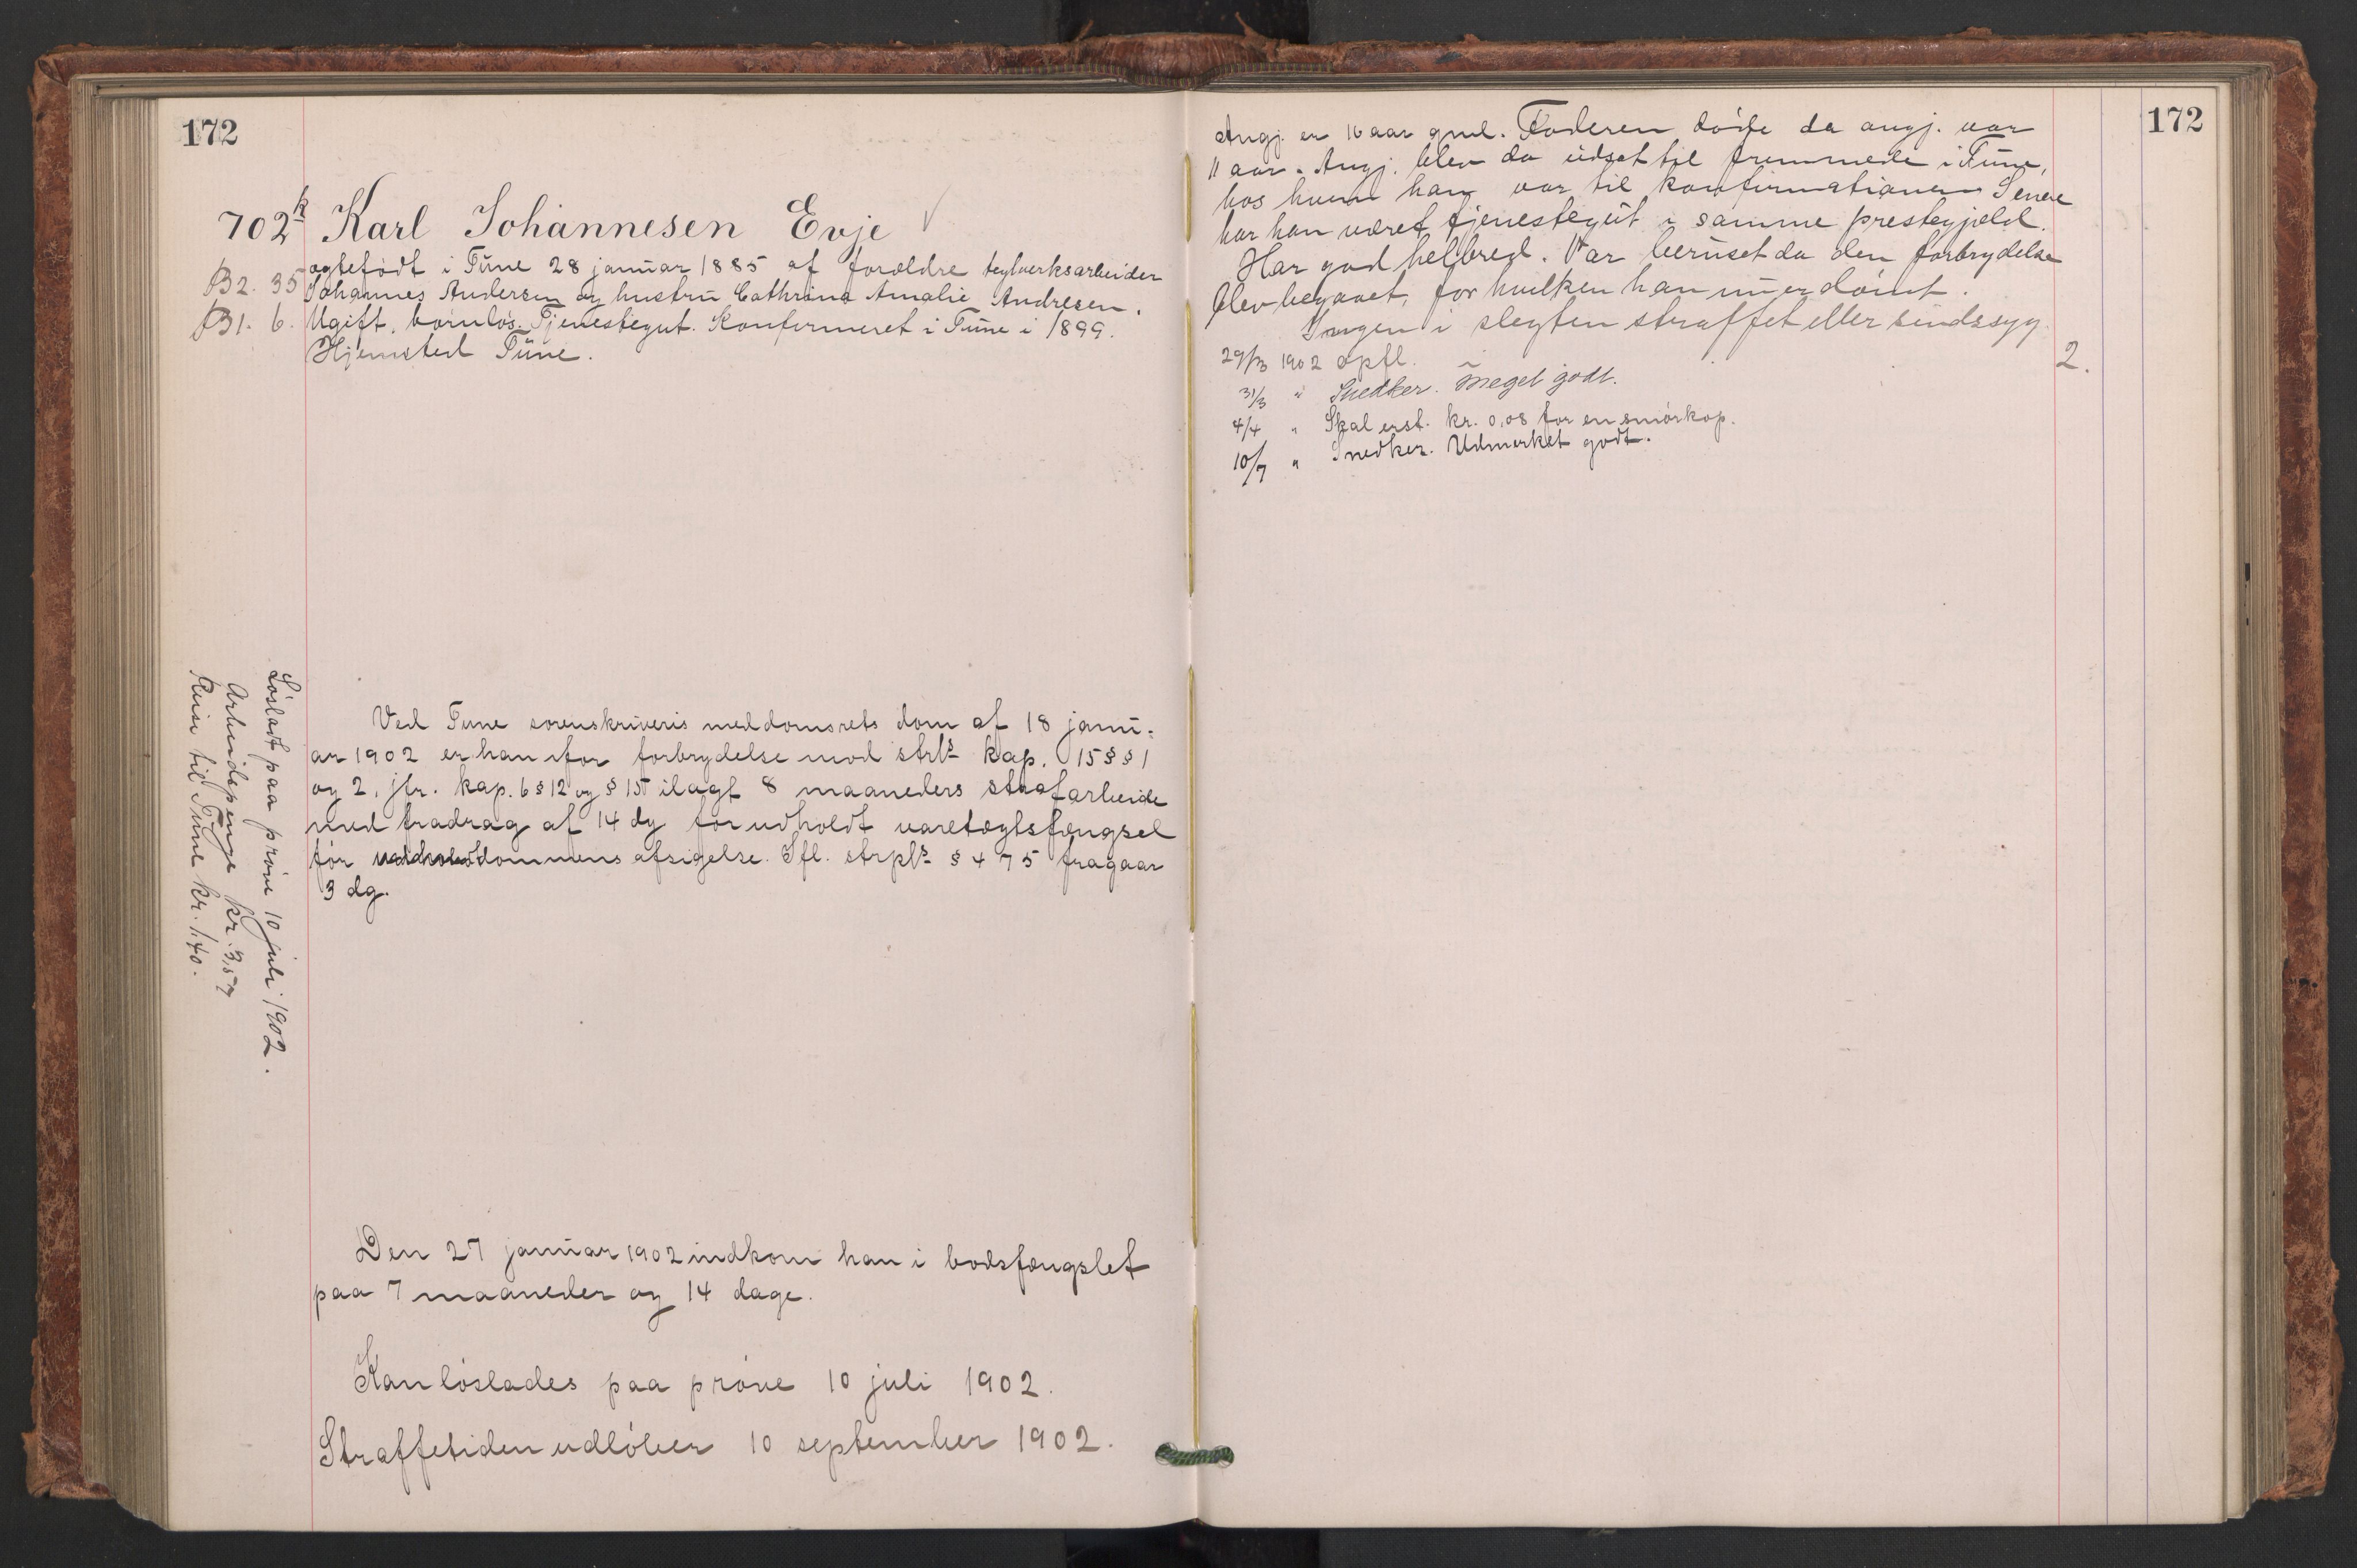 172
702k Karl Johannesen Evje ✓
ægtefødt i Tune 28 januar 1885 af forældre teglverksarbeider
B2. 35 Johannes Andersen og hustru Cathrina Amalie Andresen.
B1. 6. Ugift, barnløs. Tjenestegut. Konfirmeret i Tune i 1899.
Hjemsted Tune.
Ved Tune sorenskriveris meddomsrets dom af 18 janu-
ar 1902 er han for forbrydelse mod strls kap. 15 § § 1
og 2, jfr. kap. 6 § 12 og § 15 ilagt 8 maaneders strafarbeide
med fradrag af 14 dg for udholdt varetægtsfængsel
før dommens afsigelse. Ifl. strpls § 475 fragaar
3 dg.
Løsladt paa prøve 10 juli 1902.
Arbeidspenge kr. 3,57
Reise til Tune kr. 1.40.
Den 27 januar 1902 indkom han i bodsfængslet
paa 7 maaneder og 14 dage.
Kan løslades paa prøve 10 juli 1902.
Straffetiden udløber 10 september 1902.
172
Angj. er 16 aar gml. Faderen døde da angj. var
11 aar. Angj. blev da udsat til fremmede i Tune,
hos hvem han var til konfirmationen. Senere
har han været tjenestegut i samme prestegjæld.
Har god helbred. Var beruset da den forbrydelse
blev begaaet, for hvilken han nu er dømt.
Ingen i slegten straffet eller sindssyg.
29/3 1902 opfl. 2.
31/3 " Snedker. Meget godt.
4/4 " Skal erst. kr. 0,08 for en smørkop.
10/7 " Snedker. Udmerket godt.